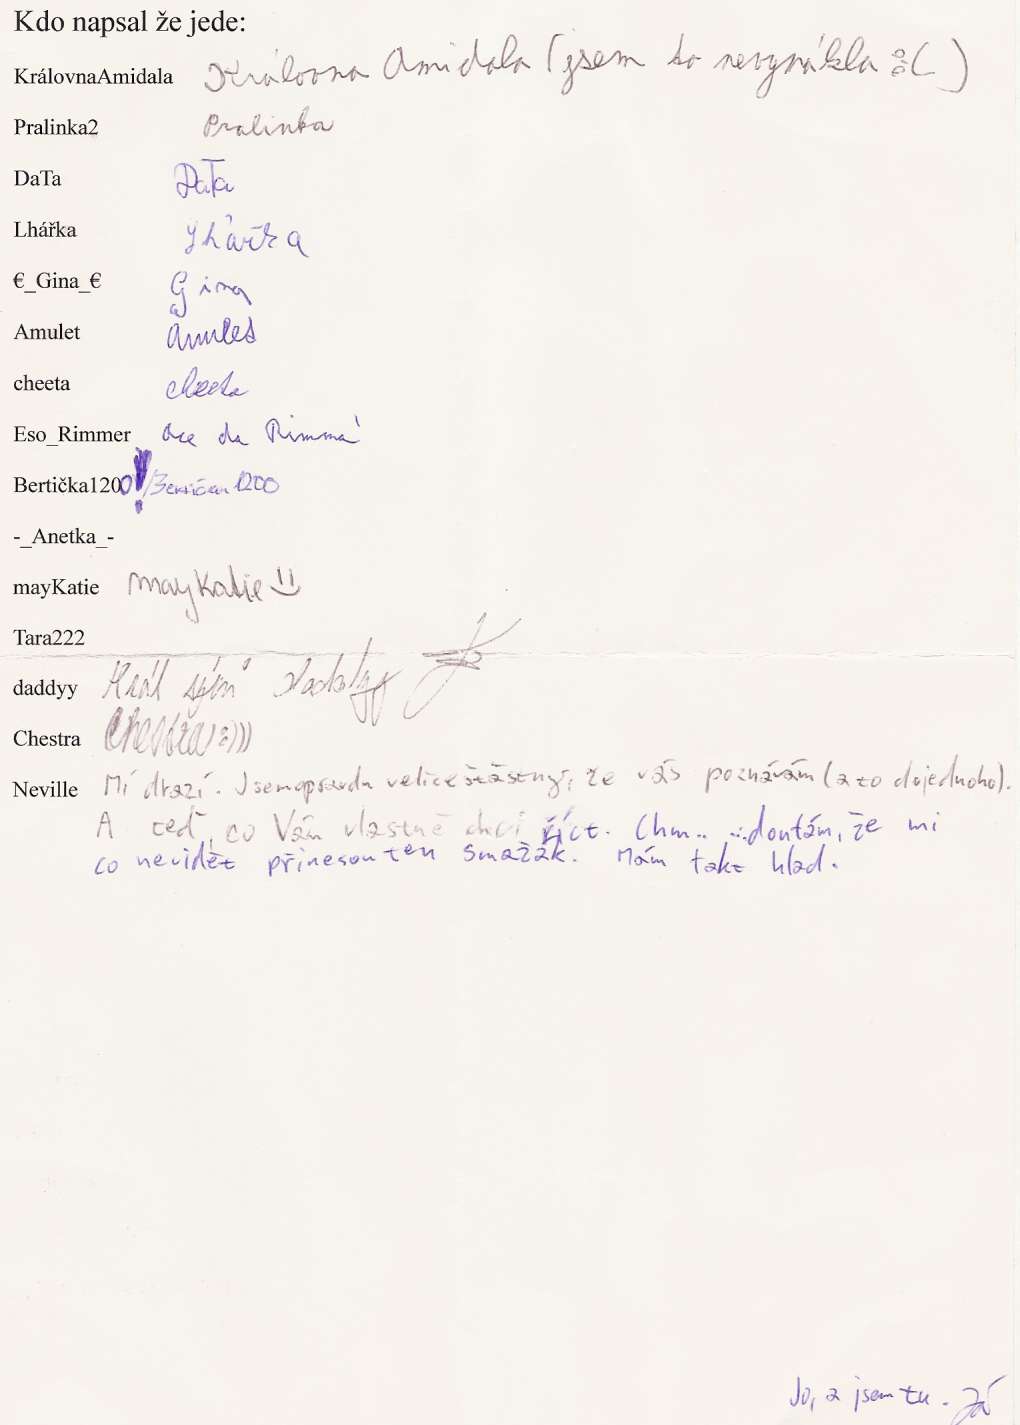 Kdo napsal že jede:
KrálovnaAmidala Královna Amidala (jsem to nevynákla :( )
Pralinka2 Pralinka
DaTa DaTa
Lhářka Lhářka
€_Gina_€ Gina
Amulet Amulet
cheeta cheeta
Eso_Rimmer Ace da Rimma'
Bertička1200! Bertička1200
-_Anetka_-
mayKatie mayKatie
Tara222
daddyy Král sýrů daddyy
Chestra Chestra :)))
Neville Mí drazí. Jsem opravdu velice šťastný, že vás poznávám (a to dojednoho).
A teď, co Vám vlastně chci říct. Chm.. ...doufám, že mi
co nevidět přinesou ten smažák. Mám take hlad.
Jo, a jsem tu. Já